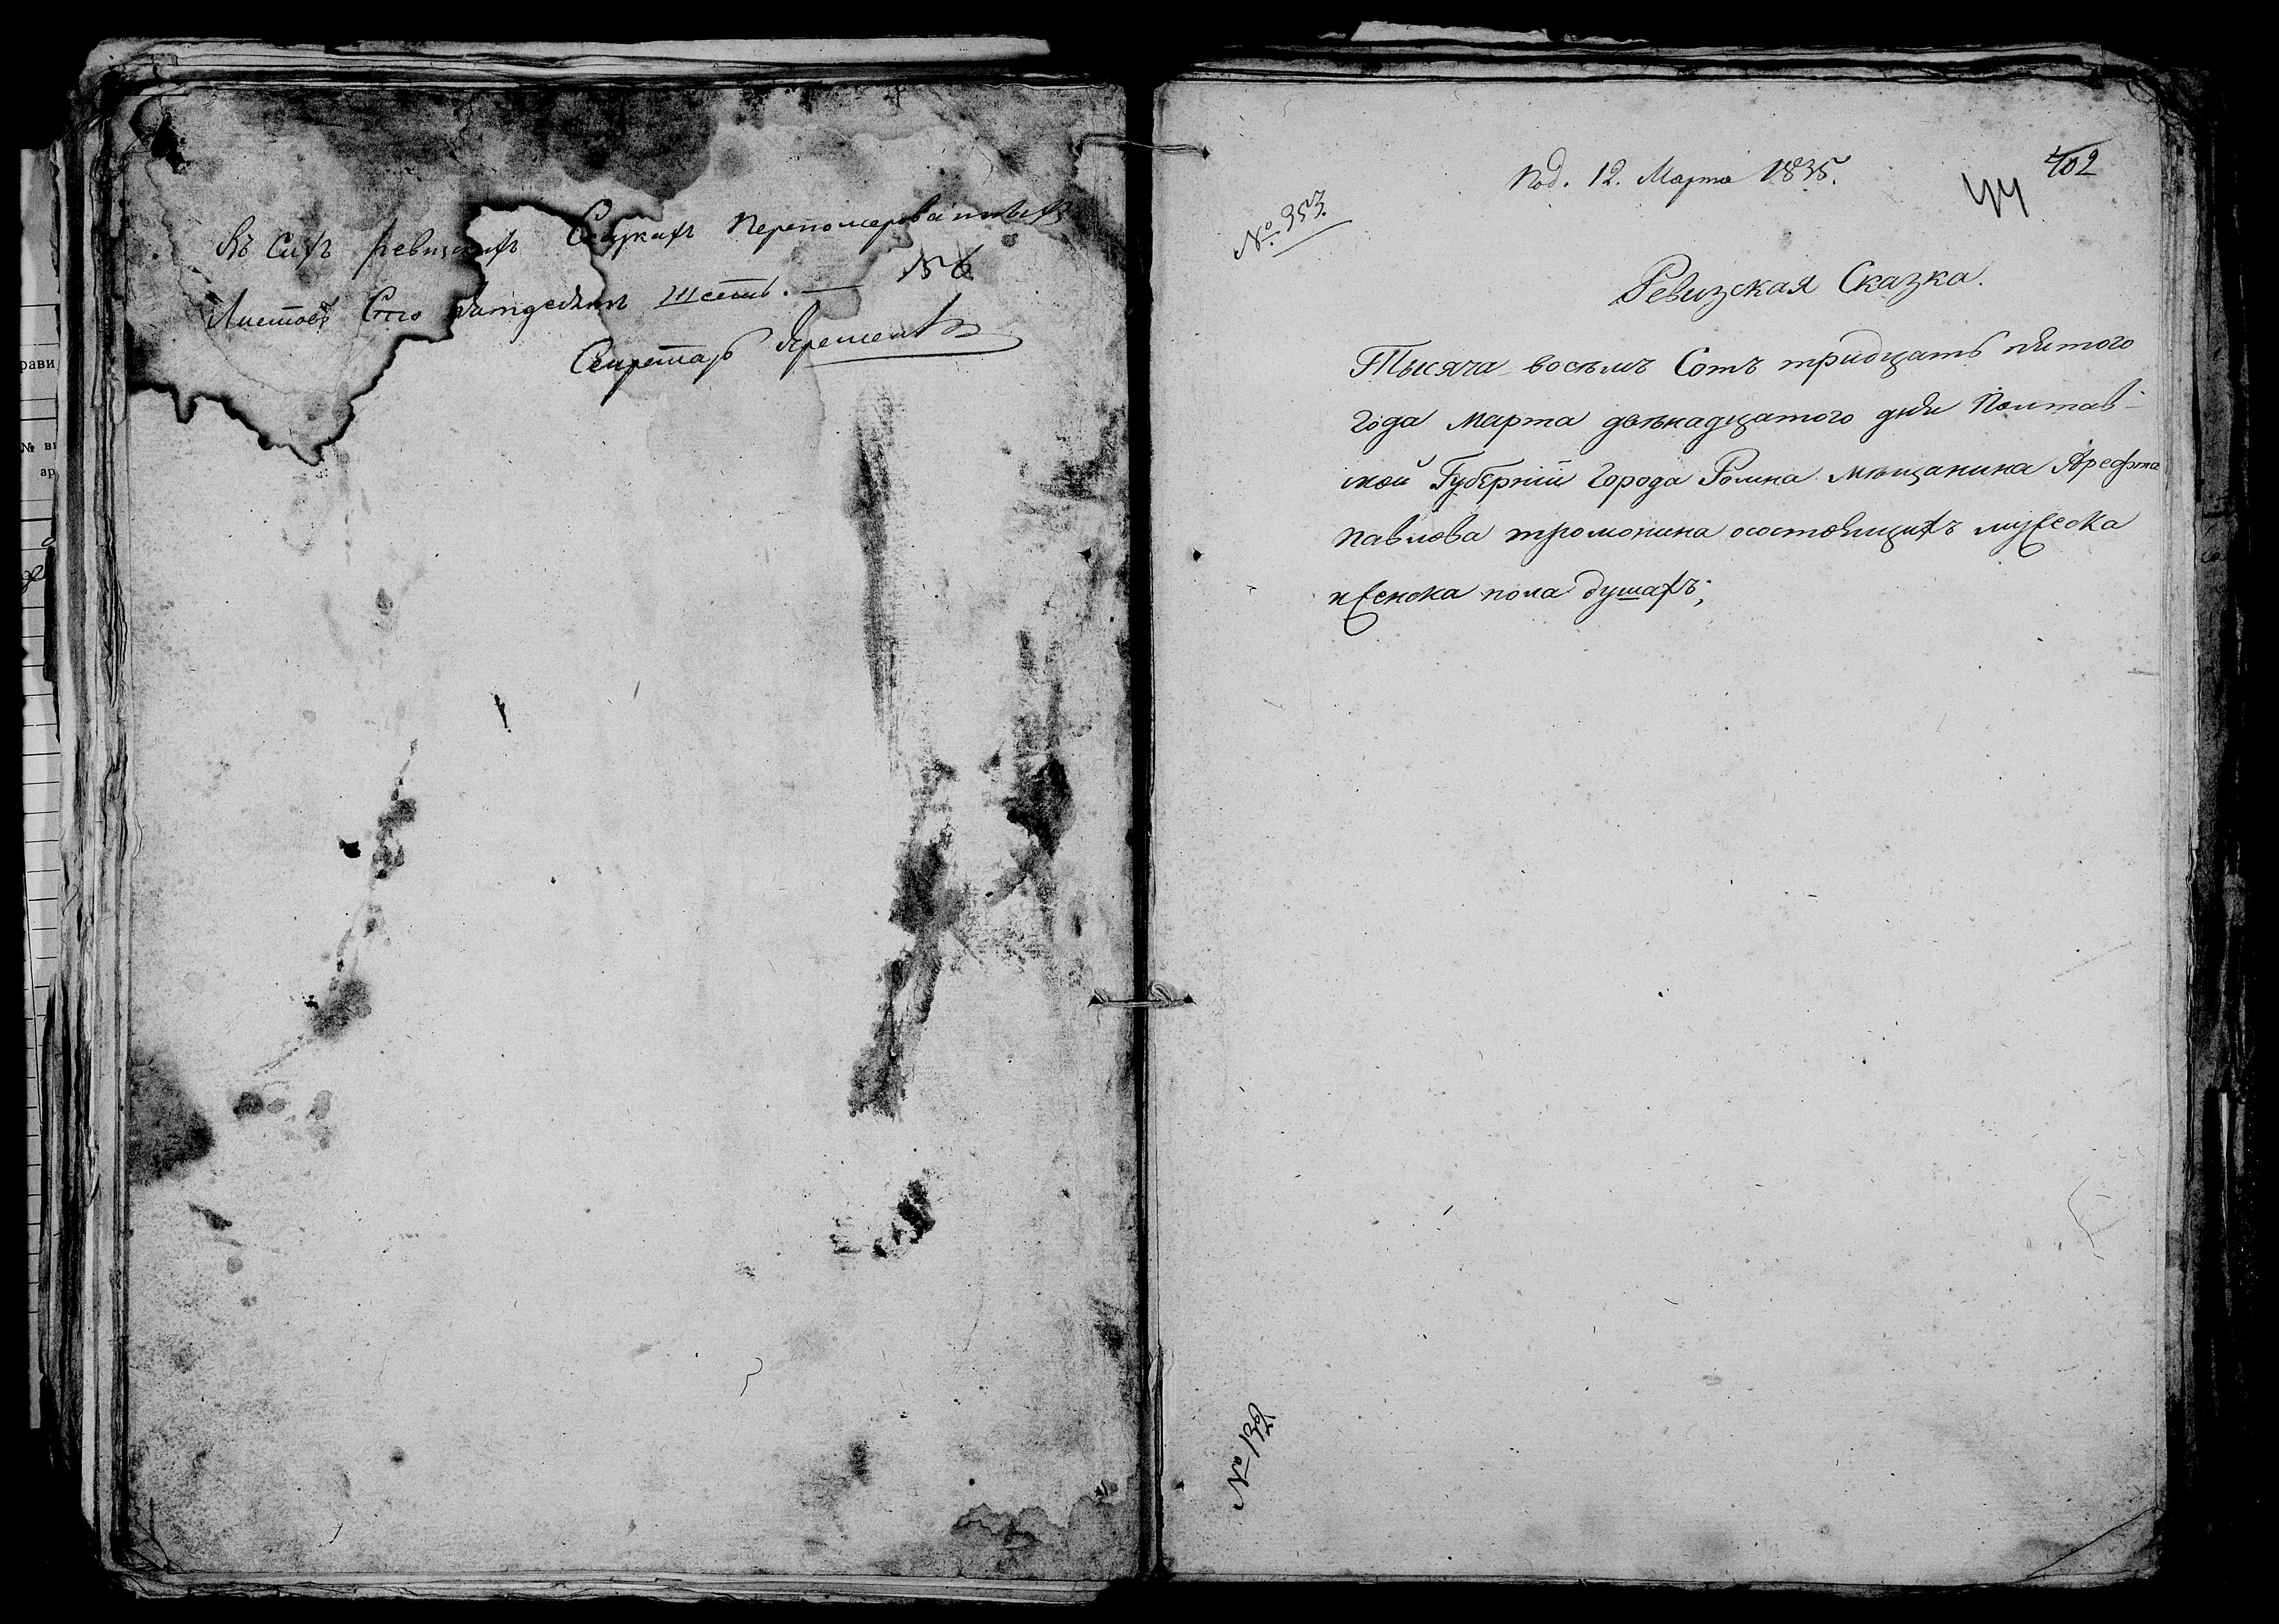 Въ сихъ ревизскихъ Сказкахъ перенумерованныхъ
Листовъ Сто пятдесятъ шесть. — 156
Секретарь
Под. 12. Марта 1835.
402
44
№ 353.
Ревизская Сказка.
Тысяча восемь Сотъ тридцать пятого
Года Марта двенадцатого дня Полтав-
ской Губернии Города Ромна мещанина Арефта
Павлова тромонина осостоящихъ мужеска
и женска пола душахъ;